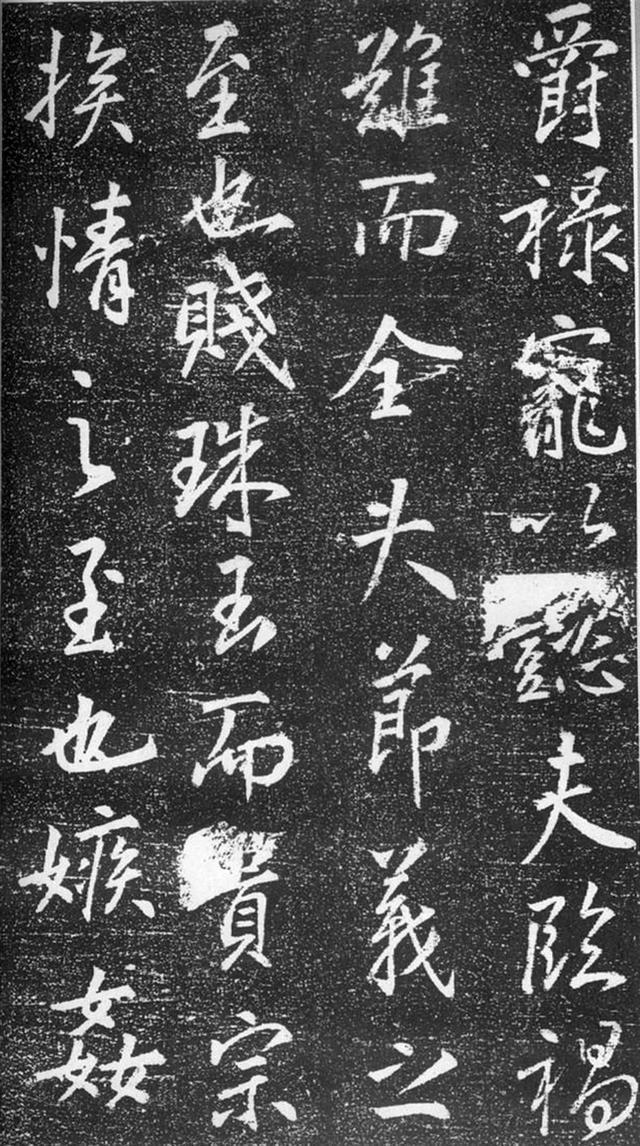 爵祿寵以懿夫臨禍
難而全大節義之
至也賤珠玉而貴宗
族情之至也嫉姦